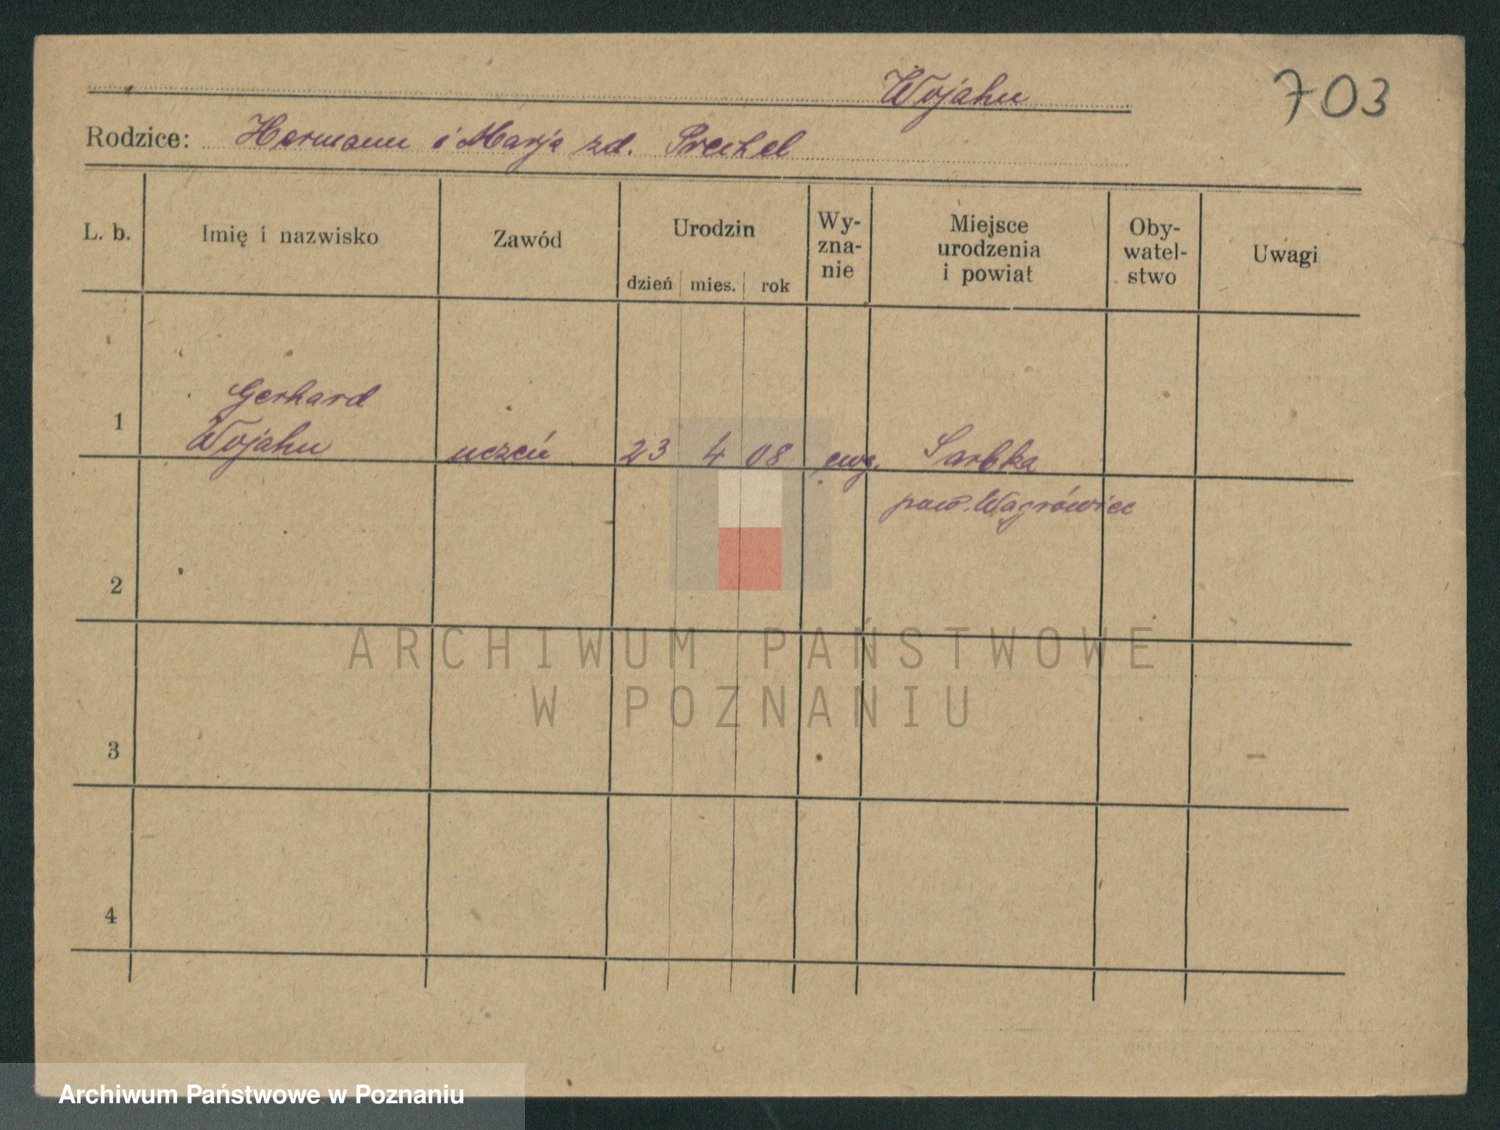 Wojahn
703
Rodzice: Hermann i Marja zd. Prechel
L. b.
Imię i nazwisko
Zawód
Urodzin
dzień mies. rok
Wy-
zna-
nie
Miejsce
urodzenia
i powiat
Oby-
watel-
stwo
Uwagi
Gerhard
1 Wojahn uczeń 23 4 08 ewg. Sarbka
pow. Wągrówiec
2
ARCHIWUM PAŃSTWOWE
W POZNANIU
3
4
Archiwum Państwowe w Poznaniu